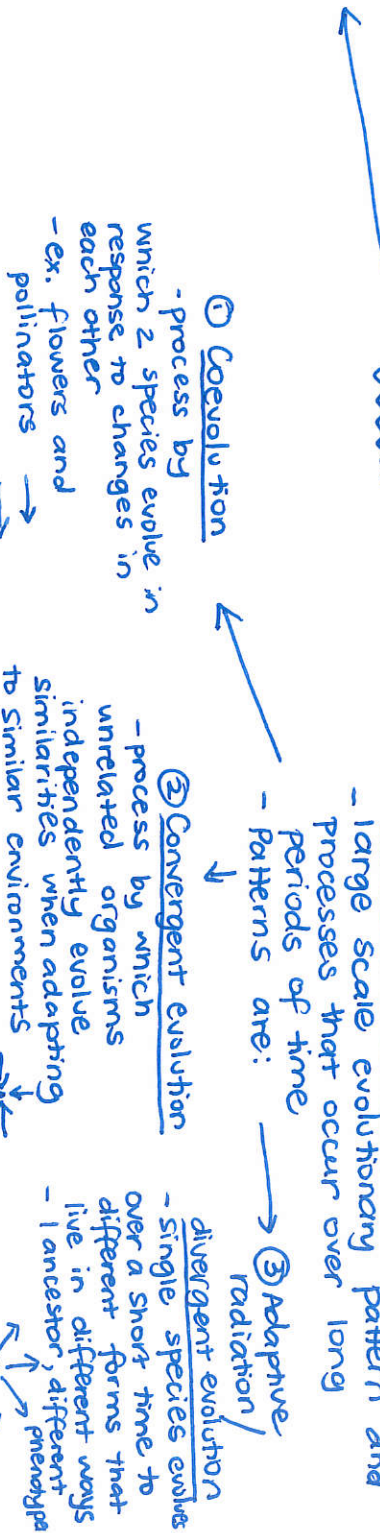 - large scale evolutionary pattern and
processes that occur over long
periods of time
- Patterns are:
① Coevolution
- process by
which 2 species evolve in
response to changes in
each other
- ex. flowers and
pollinators →
② Convergent evolution
- process by which
unrelated organisms
independently evolve
similarities when adapting
to similar environments
③ Adaptive
radiation/
divergent evolution
- single species evolves
over a short time to
different forms that
live in different ways
- 1 ancestor, different
phenotype